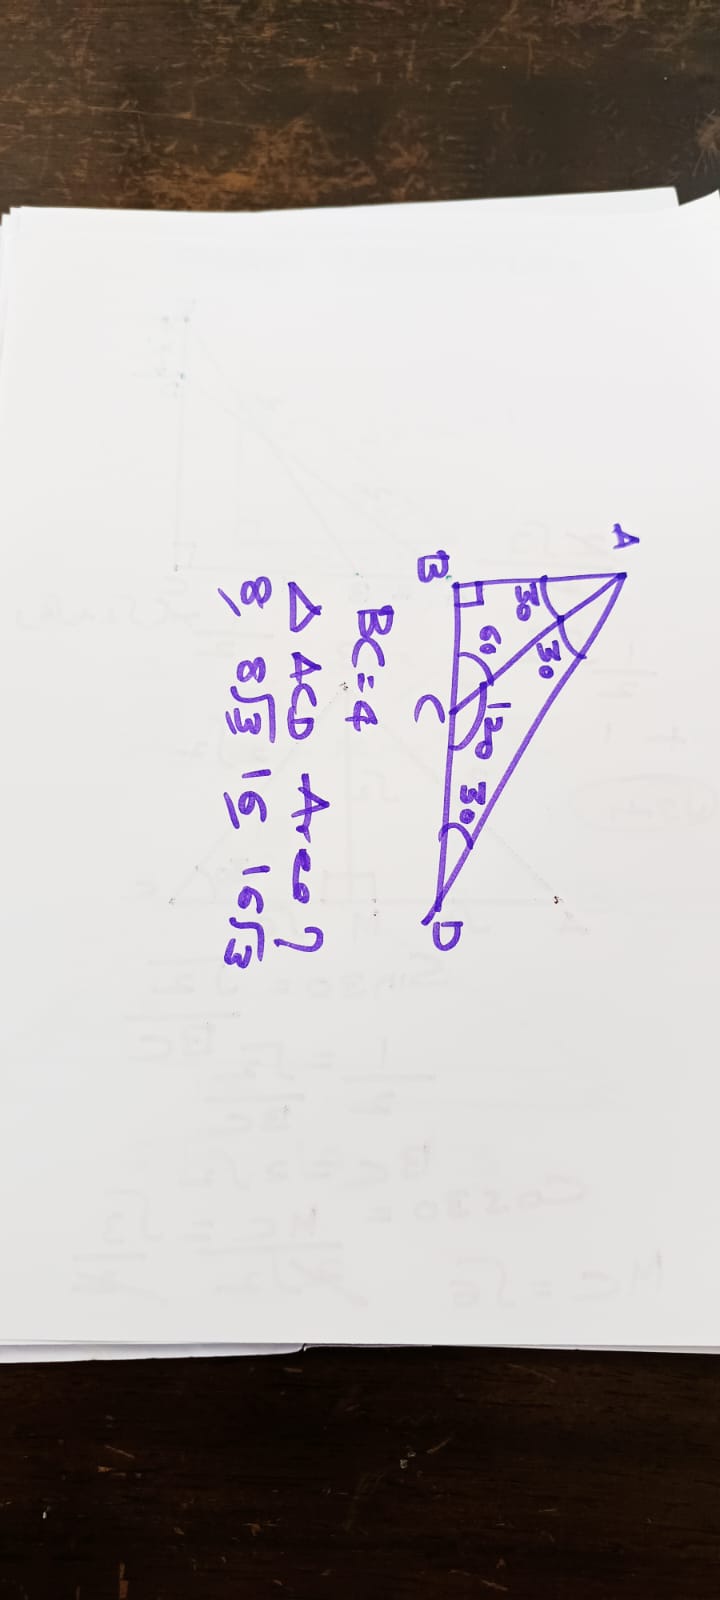 A
30
30
B
60
120
30
C
D
BC=4
Δ ACD Area?
8, 8√3 16 16√3